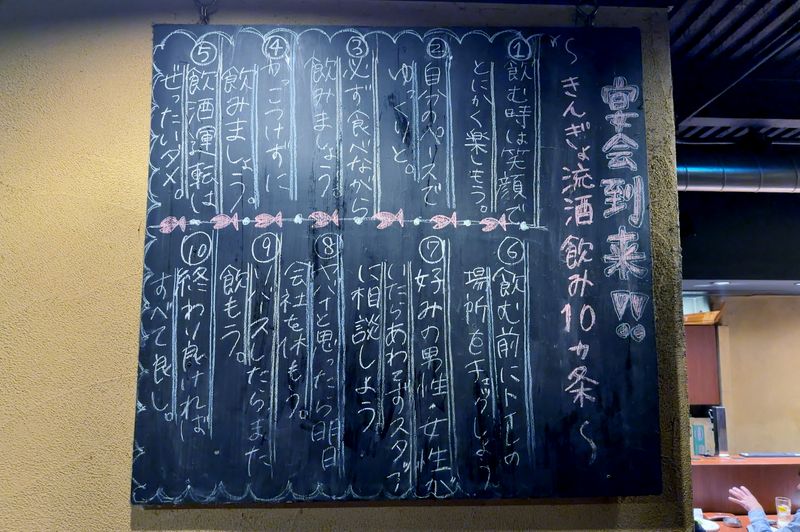 宴会到来!!
～きんぎょ流酒飲み10ヵ条～
①飲む時は笑顔で
とにかく楽しもう。
②自分のペースで
ゆっくりと。
③必ず食べながら
飲みましょう
④かっこつけずに
飲みましょう。
⑤飲酒運転は
ぜったいダメ。
⑥飲む前にトイレの
場所をチェックしよう
⑦好みの男性・女性が
いたらあわてずスタッフ
に相談しよう
⑧ヤバイと思ったら明日
会社を休もう。
⑨リバースしたらまた
飲もう。
⑩終わり良ければ
すべて良し。